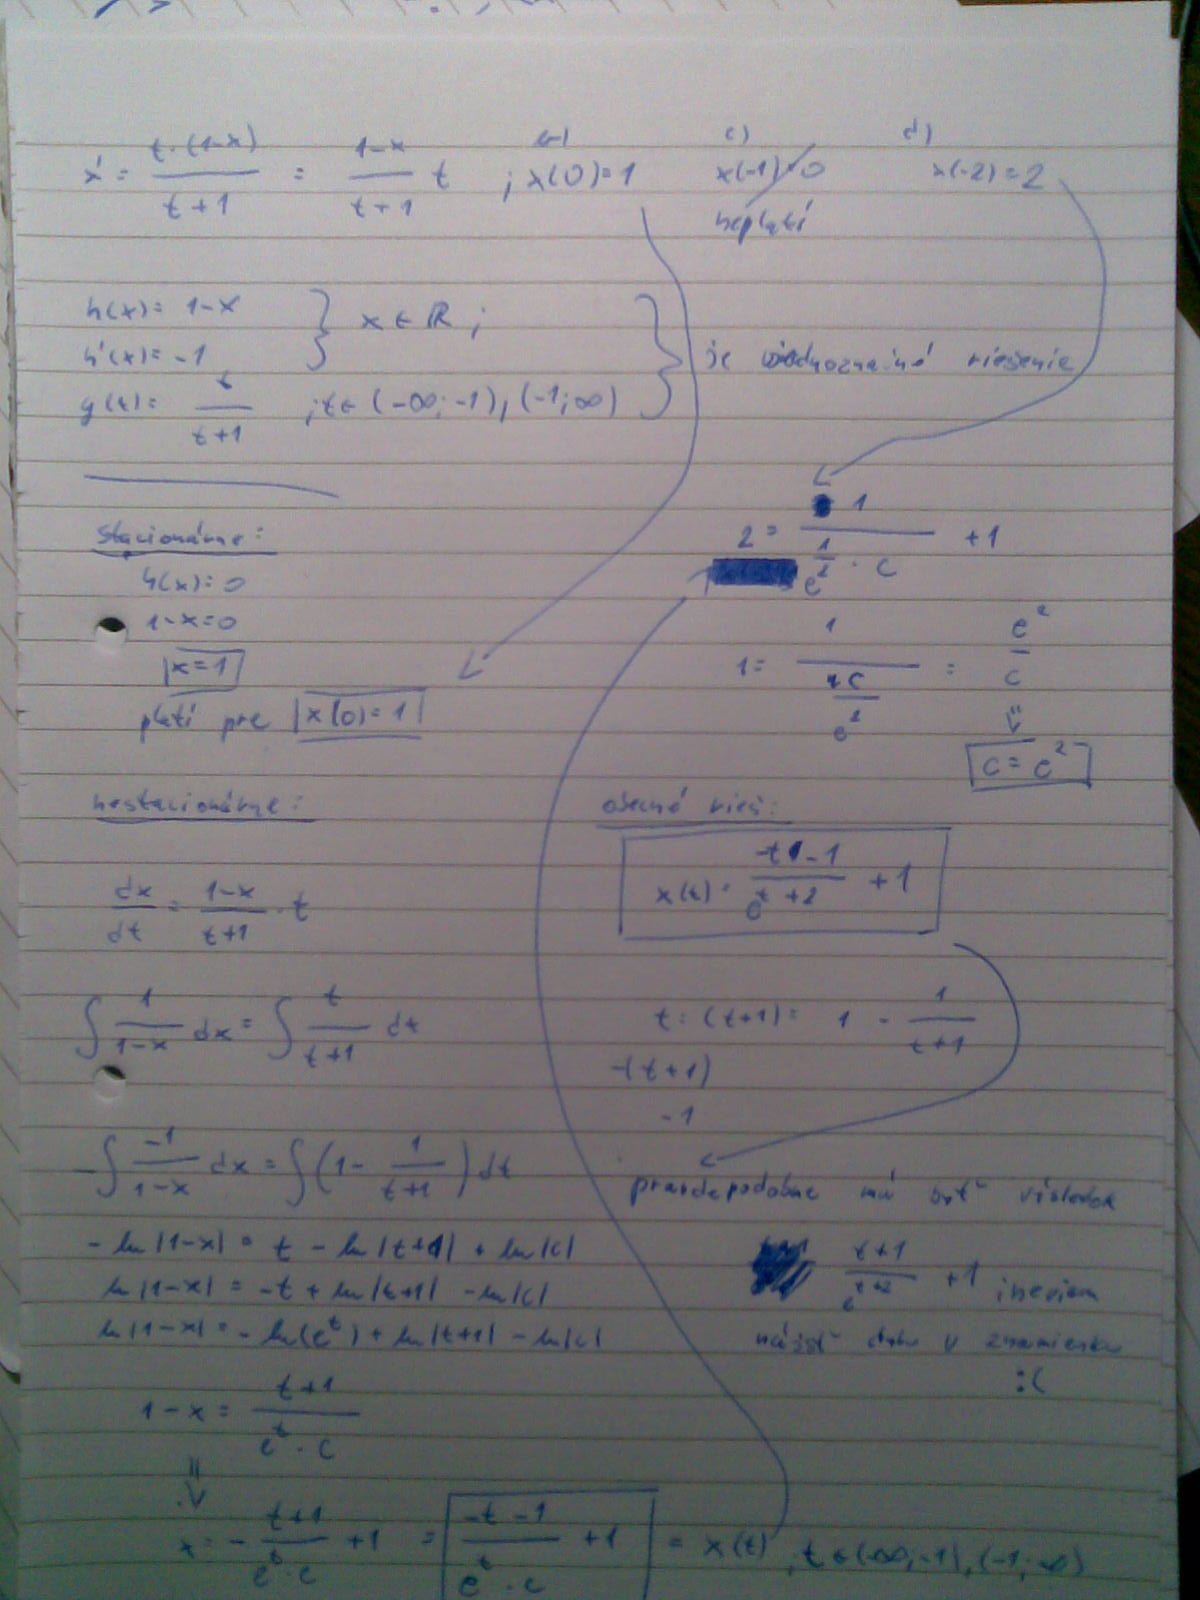 b) c) d)
x' = t·(1-x)/(t+1) = (1-x)/(t+1) t ; x(0)=1 x(-1)=0 x(-2)=2
neplatí
h(x)= 1-x
h'(x)= -1 } x ∈ ℝ ;
g(t)= t/(t+1) ; t ∈ (-∞; -1), (-1; ∞) } je jednoznačné riešenie
stacionárne:
h(x)=0
1-x=0
x=1
platí pre x(0)=1
2 = 1/(1/e² · c) +1
1 = 1/(c/e²) = e²/c
⇓
c = e²
nestacionárne:
dx/dt = (1-x)/(t+1) · t
∫ 1/(1-x) dx = ∫ t/(t+1) dt
-∫ -1/(1-x) dx = ∫ (1 - 1/(t+1)) dt
- ln|1-x| = t - ln|t+1| + ln|c|
ln|1-x| = -t + ln|t+1| - ln|c|
ln|1-x| = - ln(e^t) + ln|t+1| - ln|c|
1-x = (t+1)/(e^t · c)
⇓
x = - (t+1)/(e^t · c) +1 = (-t-1)/(e^t · c) +1 = x(t) , t ∈ (-∞, -1), (-1, ∞)
obecné rieš:
x(t) = (-t-1)/e^(t+2) +1
t : (t+1) = 1 - 1/(t+1)
-(t+1)
-1
pravdepodobne má byť výsledok
(t+1)/e^(t+2) +1 neviem
nájsť chybu v znamienku
:(